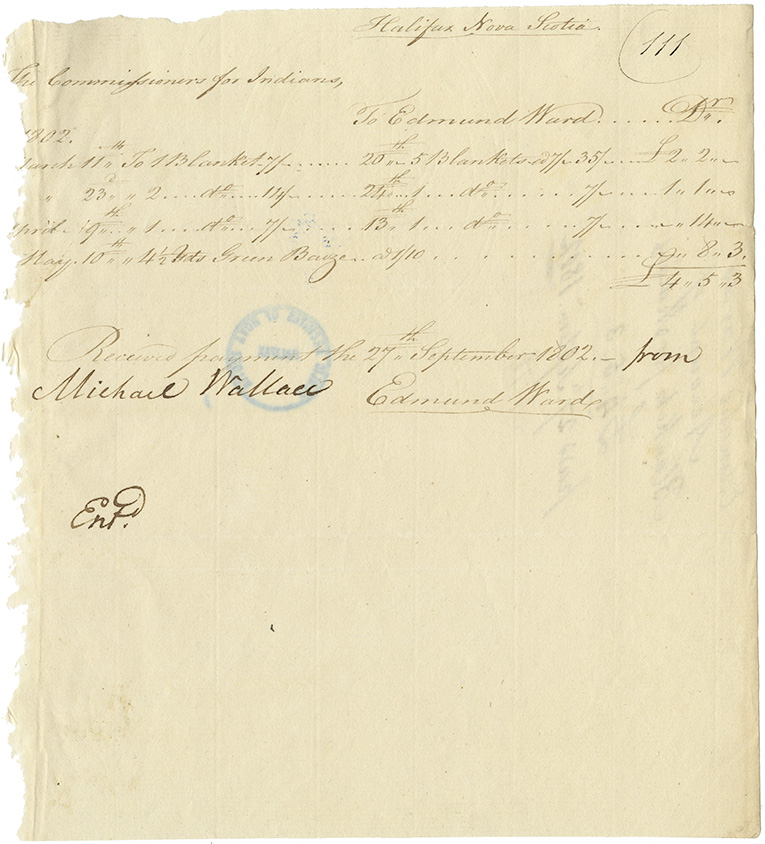 Halifax Nova Scotia.
111
The Commissioners for Indians,
To Edmund Ward. ..... Dr.
1802.
March 11th " To 1 Blanket 7/ ..... 20th " 5 Blankets @ 7/ 35/ ... £ 2 " 2 " –
" 23d " " 2 ... do ... 14/ ..... 24th " 1 ... do ..... 7/ ..... 1 " 1 " –
April 19th " " 1 ... do ... 7/ ..... 13th " 1 ... do ..... 7/ ..... " 14 " –
May 10th " " 4½ Yds Green Baize .. @ 1/10 ..... " 8 " 3.
£ 4 " 5 " 3
Received payment the 27th September 1802. – from
Michael Wallace Edmund Ward
Entd.